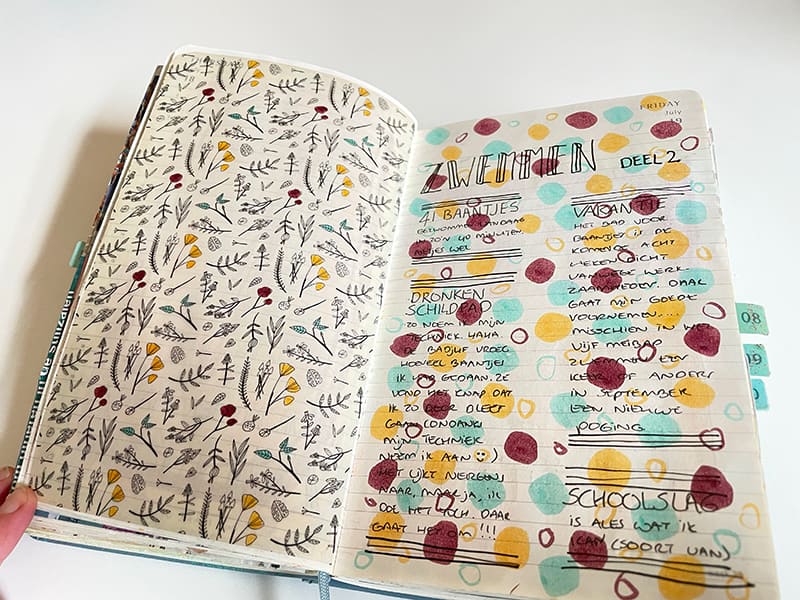 FRIDAY
July
19
ZWEMMEN DEEL 2
41 BAANTJES
GEZWOMMEN VANDAAG
IN ZO'N 40 MINUTEN
NETJES WEL
DRONKEN
SCHILDPAD
ZO NOEM IK MIJN
TECHNIEK HAHA.
DE BADJUF VROEG
HOEVEEL BAANTJES
IK HAD GEDAAN. ZE
VOND HET KNAP DAT
IK ZO DOOR BLEEF
GAAN (ONDANKS
MIJN TECHNIEK
NEEM IK AAN ☺)
HET LIJKT NERGENS
NAAR, MAAR JA, IK
DOE HET TOCH. DAAR
GAAT HET OM !!!
VAKANTIE
HET BAD VOOR
BAANTJES IS DE
KOMENDE ACHT
WEKEN DICHT
VANWEGE WERK-
ZAAMHEDEN. DAAR
GAAT MIJN GOEDE
VOORNEMEN....
MISSCHIEN IN HET
VIJF MEIBAD
ZWEMMEN EEN
KEER OF ANDERS
IN SEPTEMBER
EEN NIEUWE
POGING.
SCHOOLSLAG
IS ALES WAT IK
KAN (SOORT VAN)
08
09